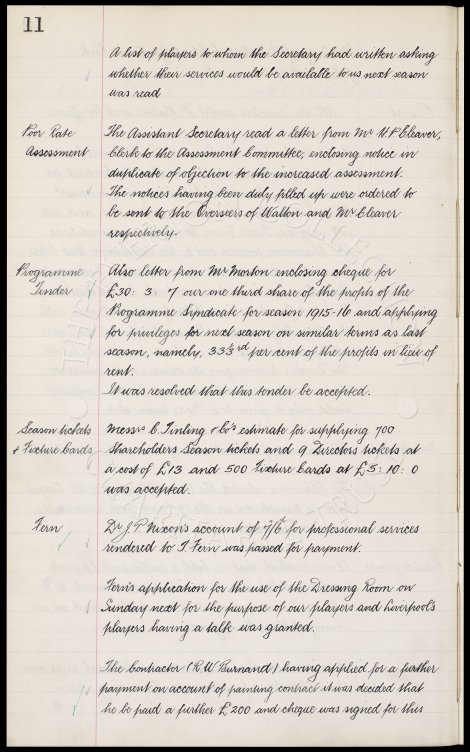 11
A list of players to whom the Secretary had written asking
whether their services would be available to us next season
was read
Poor Rate
Assessment
The Assistant Secretary read a letter from Mr H P Cleaver,
Clerk to the Assessment Committee, enclosing notice in
duplicate of objection to the increased assessment.
The notices having been duly filled up were ordered to
be sent to the Overseers of Walton and Mr Cleaver
respectively.
Programme
Tender
Also letter from Mr Morton enclosing cheque for
£30: 3: 7 our one third share of the profits of the
Programme Syndicate for season 1915-16 and applying
for privileges for next season on similar terms as last
season, namely, 33⅓rd per cent of the profits in lieu of
rent.
It was resolved that this tender be accepted.
Season tickets
+ Fixture Cards
Messrs C. Tinling & Co's estimate for supplying 700
Shareholders Season tickets and 9 Directors tickets at
a cost of £13 and 500 Fixture Cards at £5: 10: 0
was accepted.
Fern
Dr J. P. Nixon's account of 7/6 for professional services
rendered to T. Fern was passed for payment.
Fern's application for the use of the Dressing Room on
Sunday next for the purpose of our players and Liverpool's
players having a talk was granted.
The Contractor (R. W Burnand) having applied for a further
payment on account of painting contract it was decided that
he be paid a further £200 and cheque was signed for this